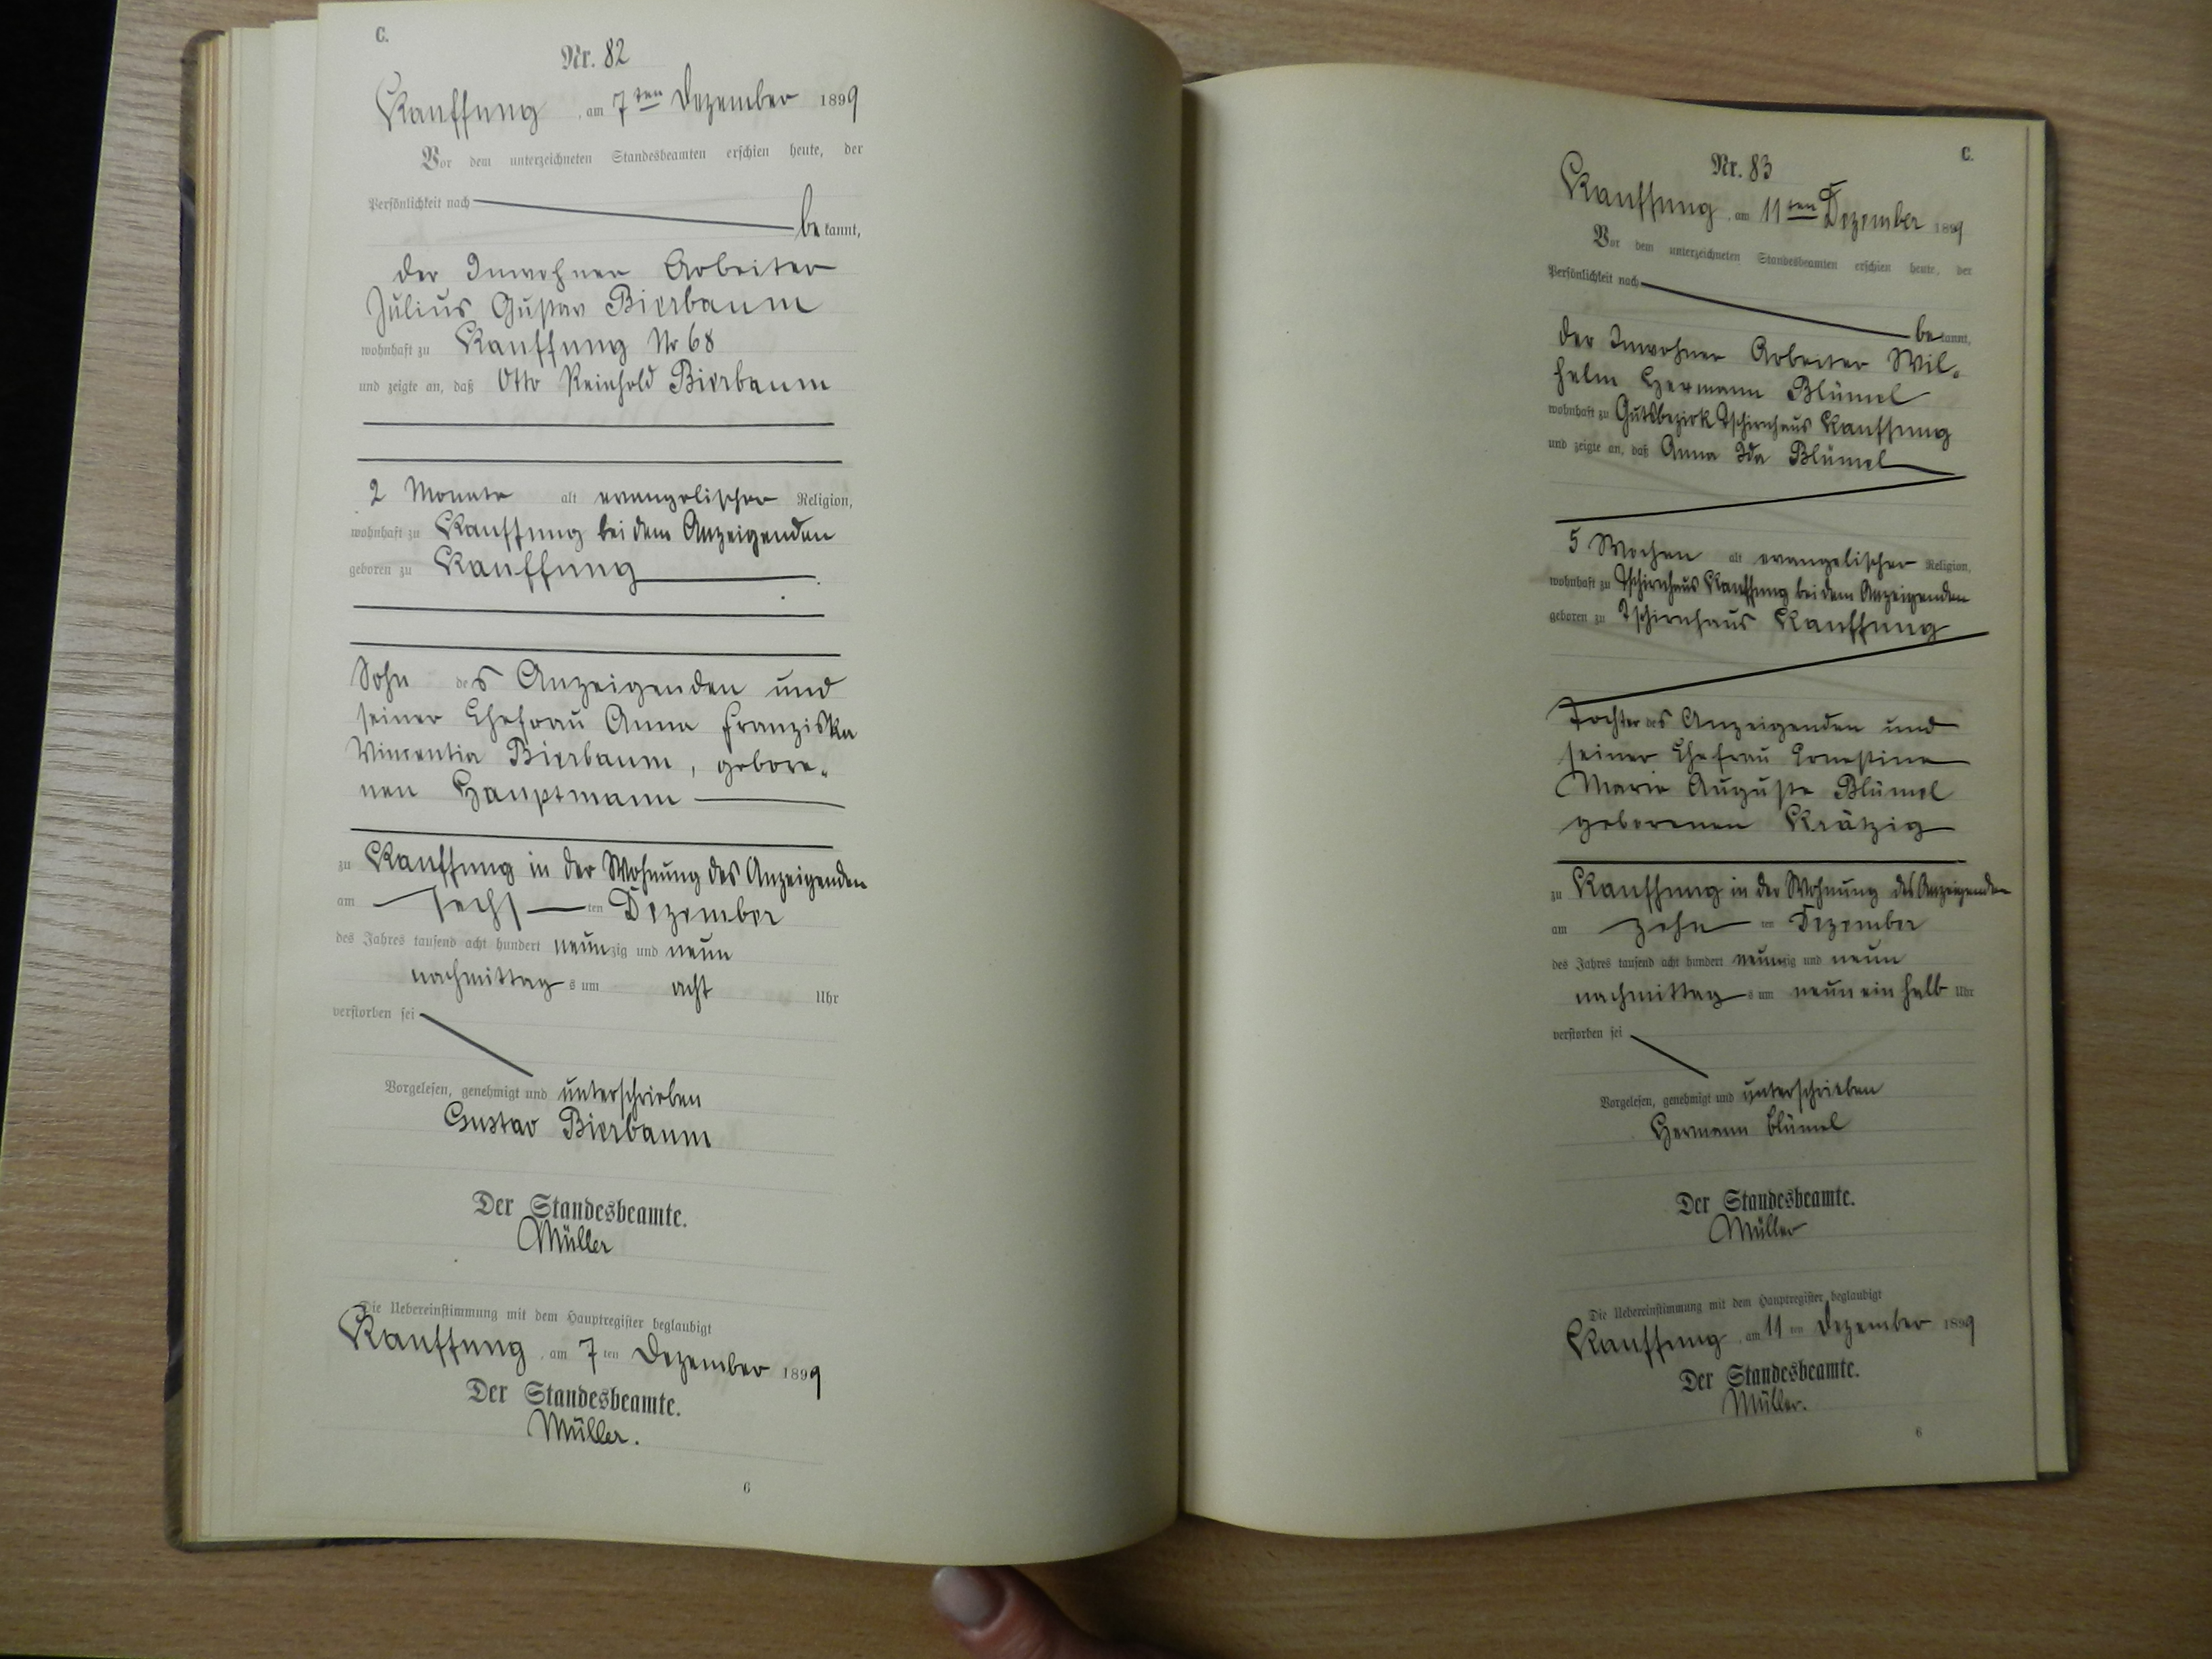 C.
Nr. 82
Kauffung, am 7ten Dezember 1899
Vor dem unterzeichneten Standesbeamten erschien heute, der
Persönlichkeit nach
bekannt,
der Inwohner Arbeiter
Julius Gustav Bierbaum
wohnhaft zu Kauffung Nr 68
und zeigte an, daß Otto Reinhold Bierbaum
2 Monate alt evangelischer Religion,
wohnhaft zu Kauffung bei dem Anzeigenden
geboren zu Kauffung
Sohn des Anzeigenden und
seiner Ehefrau Anna Franziska
Bierbaum, gebore-
nen Hauptmann
zu Kauffung in der Wohnung des Anzeigenden
am sechsten Dezember
des Jahres tausend acht hundert neunzig und neun
nachmittags um acht Uhr
verstorben sei
Vorgelesen, genehmigt und unterschrieben
Gustav Bierbaum
Der Standesbeamte.
Müller
Die Uebereinstimmung mit dem Hauptregister beglaubigt
Kauffung, am 7ten Dezember 1899
Der Standesbeamte.
Müller.
6
C.
Nr. 83
Kauffung, am 11ten Dezember 1899
Vor dem unterzeichneten Standesbeamten erschien heute, der
Persönlichkeit nach
bekannt,
der Inwohner Arbeiter Wil-
helm Hermann Blümel
wohnhaft zu Gutsbezirk Tschirnhaus Kauffung
und zeigte an, daß Anna Ida Blümel
5 Wochen alt evangelischer Religion,
wohnhaft zu Tschirnhaus Kauffung bei dem Anzeigenden
geboren zu Tschirnhaus Kauffung
Tochter des Anzeigenden und
seiner Ehefrau Ernestine
Marie Auguste Blümel
geborenen Krätzig
zu Kauffung in der Wohnung des Anzeigenden
am zehnten Dezember
des Jahres tausend acht hundert neunzig und neun
nachmittags um neun ein halb Uhr
verstorben sei
Vorgelesen, genehmigt und unterschrieben
Hermann Blümel
Der Standesbeamte.
Müller
Die Uebereinstimmung mit dem Hauptregister beglaubigt
Kauffung, am 11ten Dezember 1899
Der Standesbeamte.
Müller.
6